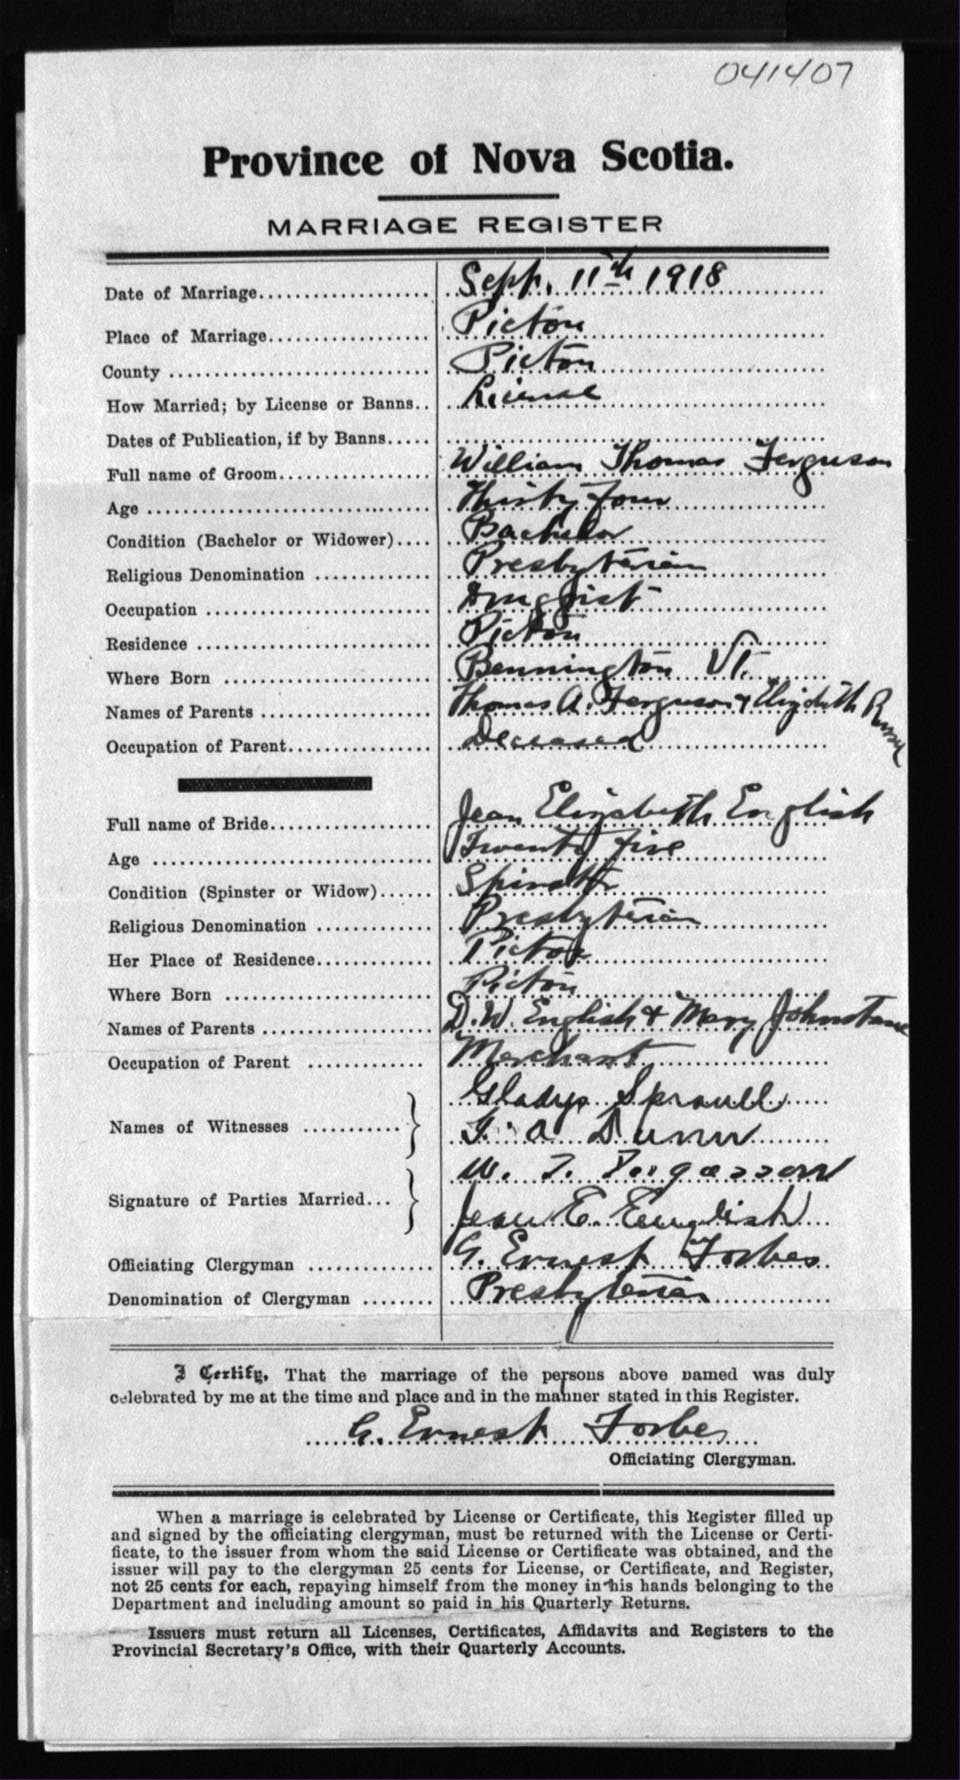 041407
Province of Nova Scotia.
MARRIAGE REGISTER
Date of Marriage.................... Sept. 11th 1918
Place of Marriage.................. Pictou
County ............................. Pictou
How Married; by License or Banns.. License
Dates of Publication, if by Banns.....
Full name of Groom................. William Thomas Ferguson
Age ................................ Thirty four
Condition (Bachelor or Widower).... Bachelor
Religious Denomination ............. Presbyterian
Occupation ......................... Druggist
Residence .......................... Pictou
Where Born ........................ Bennington Vt.
Names of Parents ................... Thomas A. Ferguson & Elizabeth
Occupation of Parent................ Deceased
Full name of Bride.................. Jean Elizabeth English
Age ............................... Twenty five
Condition (Spinster or Widow)...... Spinster
Religious Denomination ............. Presbyterian
Her Place of Residence............. Pictou
Where Born ....................... Pictou
Names of Parents ................... D. W. English & Mary Johnstone
Occupation of Parent ............. Merchant
Names of Witnesses ........... } Gladys Sproull
A Dunn
Signature of Parties Married... } W. T. Fergusson
Jean E. English
Officiating Clergyman .............. G. Ernest Forbes
Denomination of Clergyman ........ Presbyterian
I Certify, That the marriage of the persons above named was duly
celebrated by me at the time and place and in the manner stated in this Register.
G. Ernest Forbes
Officiating Clergyman.
When a marriage is celebrated by License or Certificate, this Register filled up
and signed by the officiating clergyman, must be returned with the License or Certi-
ficate, to the issuer from whom the said License or Certificate was obtained, and the
issuer will pay to the clergyman 25 cents for License, or Certificate, and Register,
not 25 cents for each, repaying himself from the money in his hands belonging to the
Department and including amount so paid in his Quarterly Returns.
Issuers must return all Licenses, Certificates, Affidavits and Registers to the
Provincial Secretary's Office, with their Quarterly Accounts.